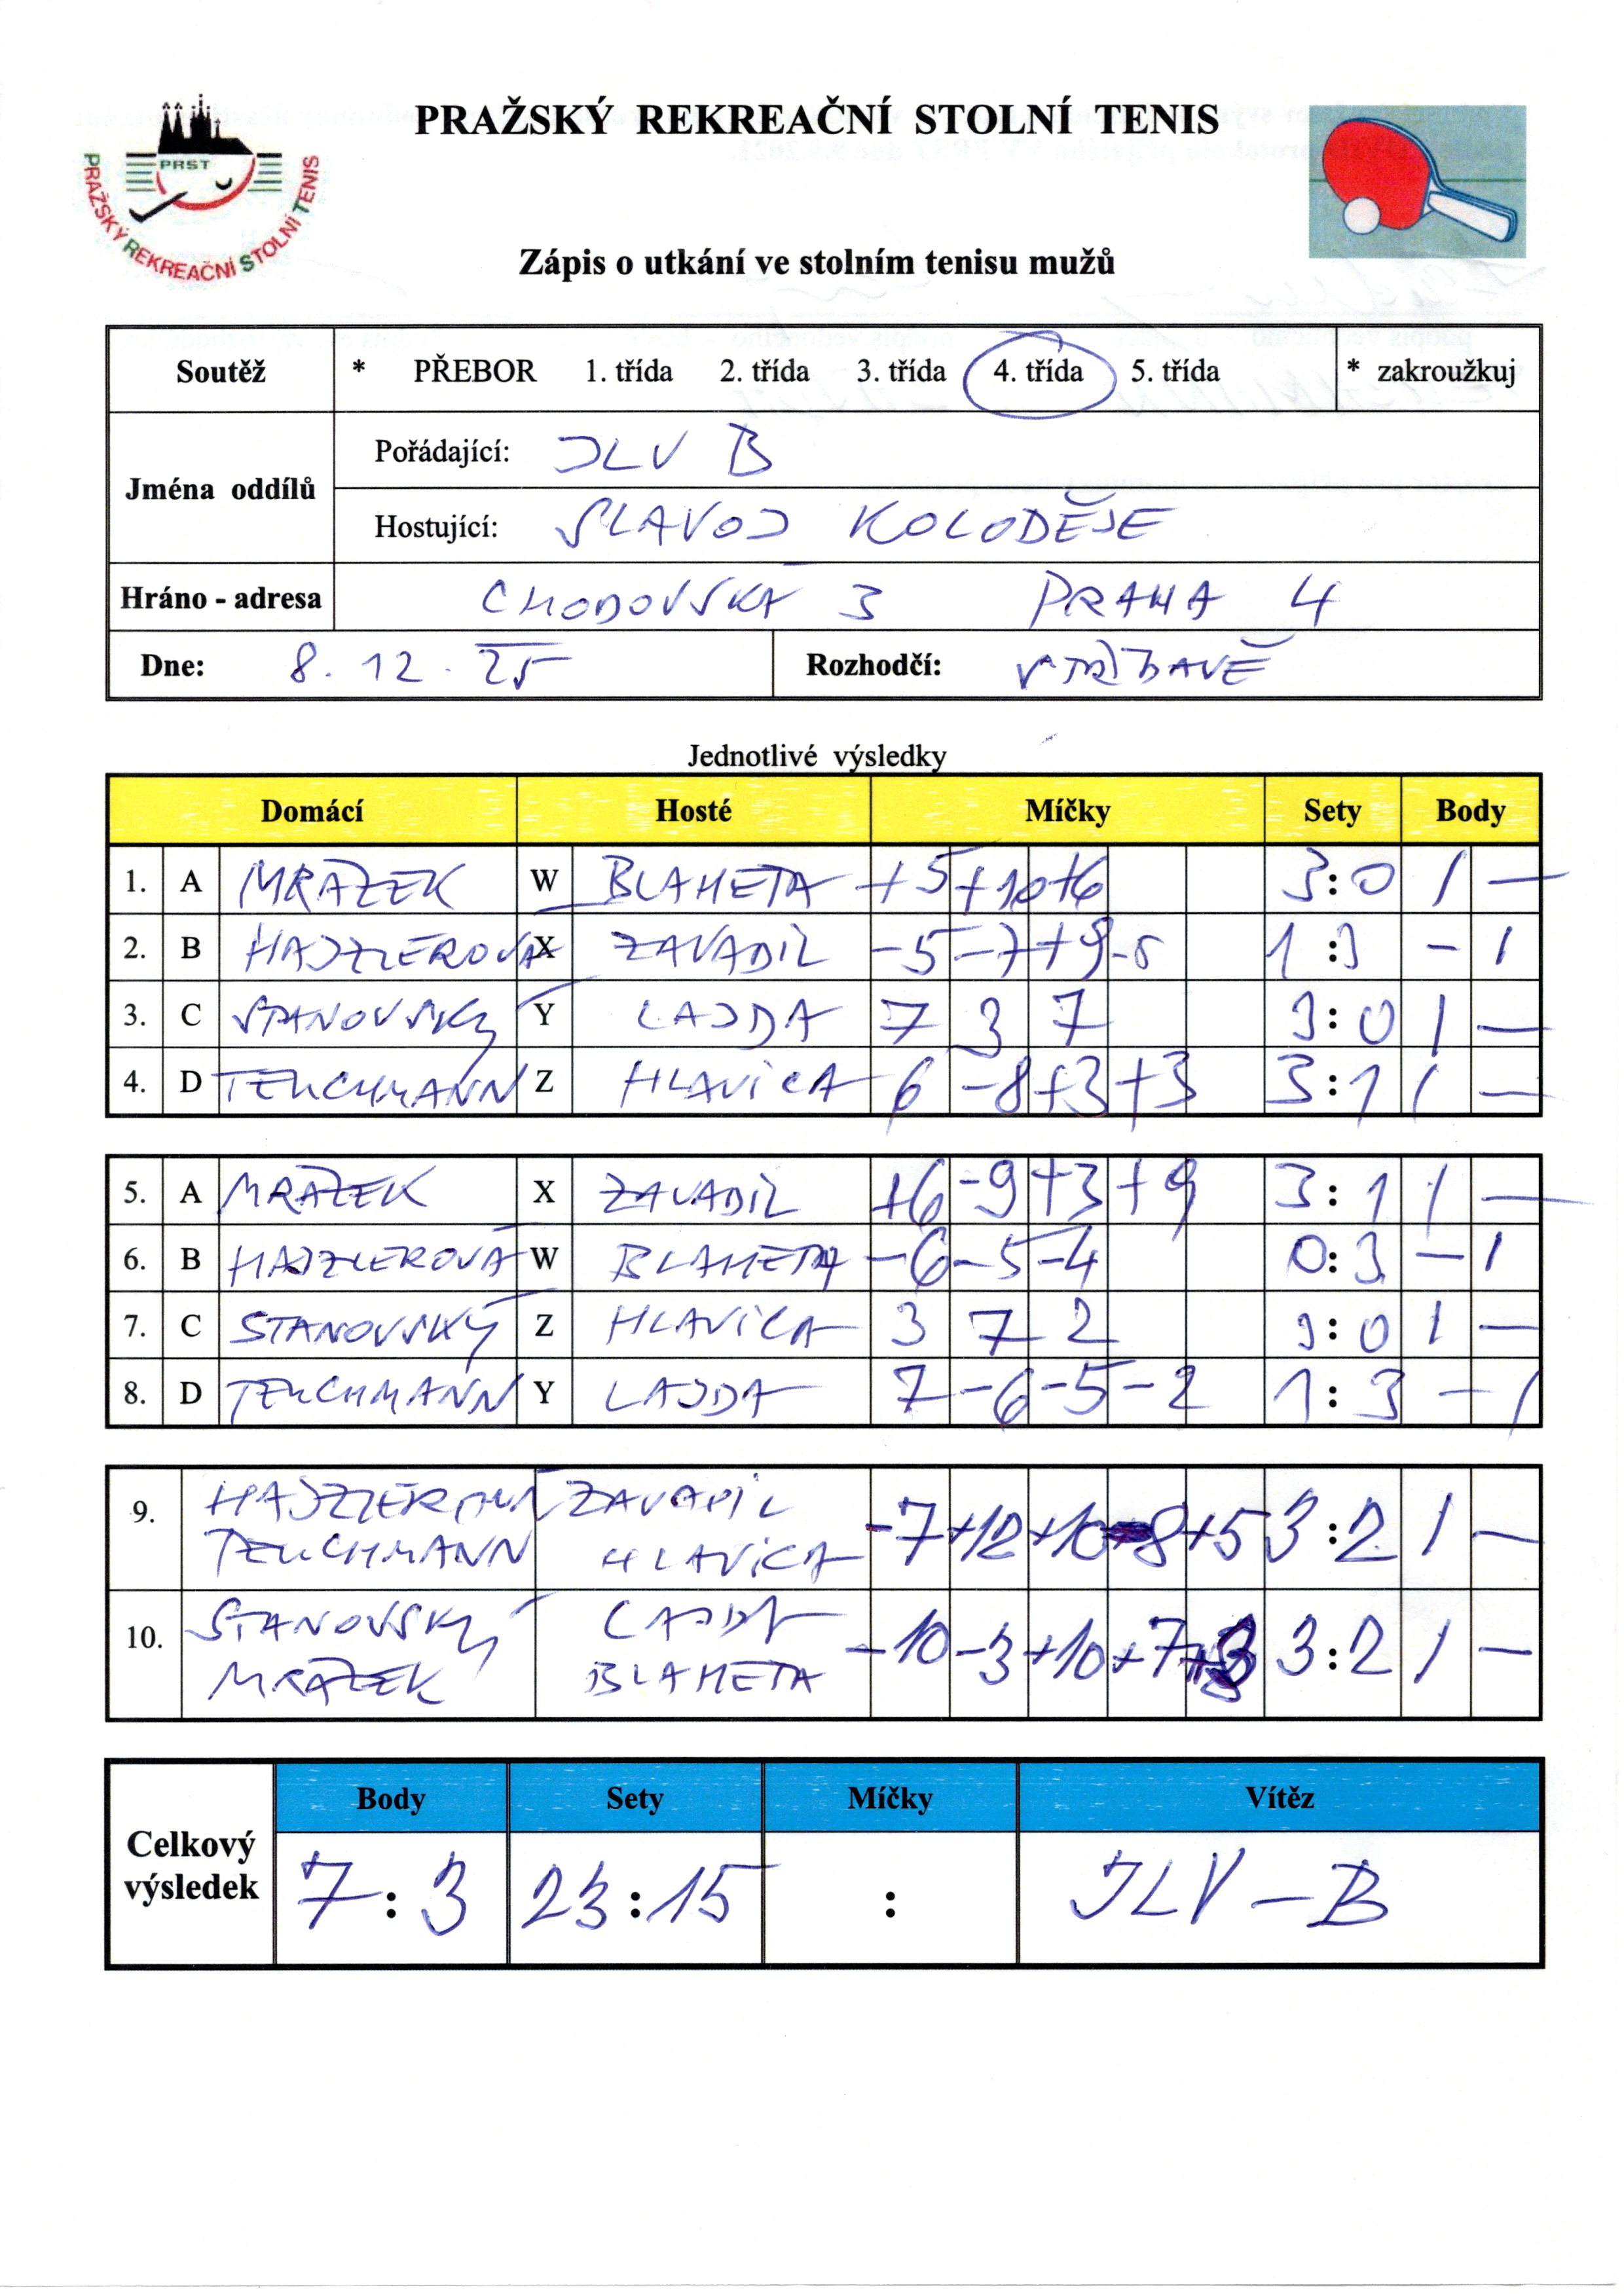 PRAŽSKÝ REKREAČNÍ STOLNÍ TENIS
PRST
PRAŽSKÝ REKREAČNÍ STOLNÍ TENIS
Zápis o utkání ve stolním tenisu mužů
Soutěž * PŘEBOR 1. třída 2. třída 3. třída 4. třída 5. třída * zakroužkuj
Jména oddílů
Pořádající: JLV B
Hostující: SLAVOJ KOLODĚJE
Hráno - adresa CHODOVSKÁ 3 PRAHA 4
Dne: 8. 12. 25 Rozhodčí: STŘÍDAVĚ
Jednotlivé výsledky
Domácí Hosté Míčky Sety Body
1. A MRÁZEK W BLAHETA +5 +10 +6 3:0 1 —
2. B HAJZLEROVÁ X ZAVADIL -5 -7 +9 -8 1:3 - 1
3. C STANOVSKÝ Y LAJDA 7 3 7 3:0 1 —
4. D TEUCHMANN Z HLAVICA 6 -8 +3 +3 3:1 1 —
5. A MRÁZEK X ZAVADIL +6 -9 +3 +9 3:1 1 —
6. B HAJZLEROVÁ W BLAHETA -6 -5 -4 0:3 — 1
7. C STANOVSKÝ Z HLAVICA 3 7 2 3:0 1 —
8. D TEUCHMANN Y LAJDA 7 -6 -5 -2 1:3 — 1
9. HAJZLEROVÁ ZAVADIL
TEUCHMANN HLAVICA -7 +12 +10 -8 +5 3:2 1 —
10. STANOVSKÝ LAJDA
MRÁZEK BLAHETA -10 -3 +10 +7 3:2 1 —
Celkový výsledek
Body Sety Míčky Vítěz
7:3 23:15 : JLV - B